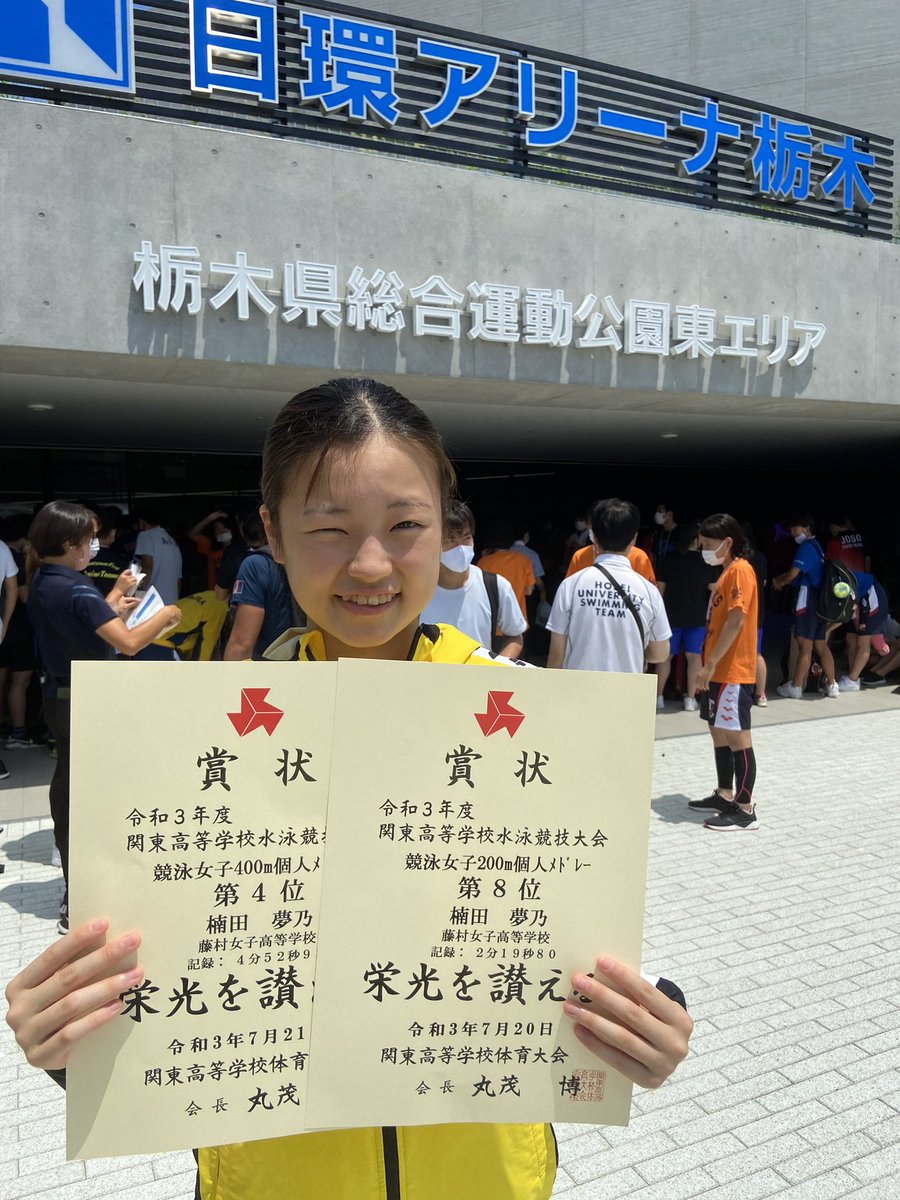 日環アリーナ栃木
栃木県総合運動公園東エリア
HOSEI
UNIVERSITY
SWIMMING
TEAM
JOSO
賞状
令和3年度
関東高等学校水泳競技
競泳女子400m個人ﾒ
第4位
楠田 夢乃
藤村女子高等学校
記録: 4分52秒9
栄光を讃え
令和3年7月21
関東高等学校体育
会長 丸茂
賞状
令和3年度
関東高等学校水泳競技大会
競泳女子200m個人ﾒﾄﾞﾚｰ
第8位
楠田 夢乃
藤村女子高等学校
記録: 2分19秒80
栄光を讃え
令和3年7月20日
関東高等学校体育大会
会長 丸茂 博